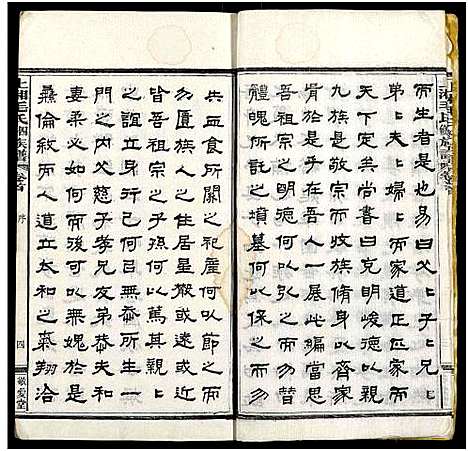 而生者是也易曰父〻子〻兄〻
弟〻夫〻婦〻而家道正正家而
天下定矣尚書曰克明峻德以親
九族是敬宗而收族脩身以齊家
者責任在吾人一展此編為吾人
祖宗之所式憑何以弘之而為替
體魄所託之墳墓何以保之而勿
共血食所關之祀產何以節之而
勿匱族人之住居星散或遠或近
皆吾祖宗之子孫何以篤其親〻
之誼立身行己何以無忝所生一
門之內父慈子孝兄友弟恭夫和
妻柔必如何而後可以無媿於是
彞倫敘而人道立太和之氣翔洽
上湘毛氏四修族譜 卷首
序
四
敬愛堂